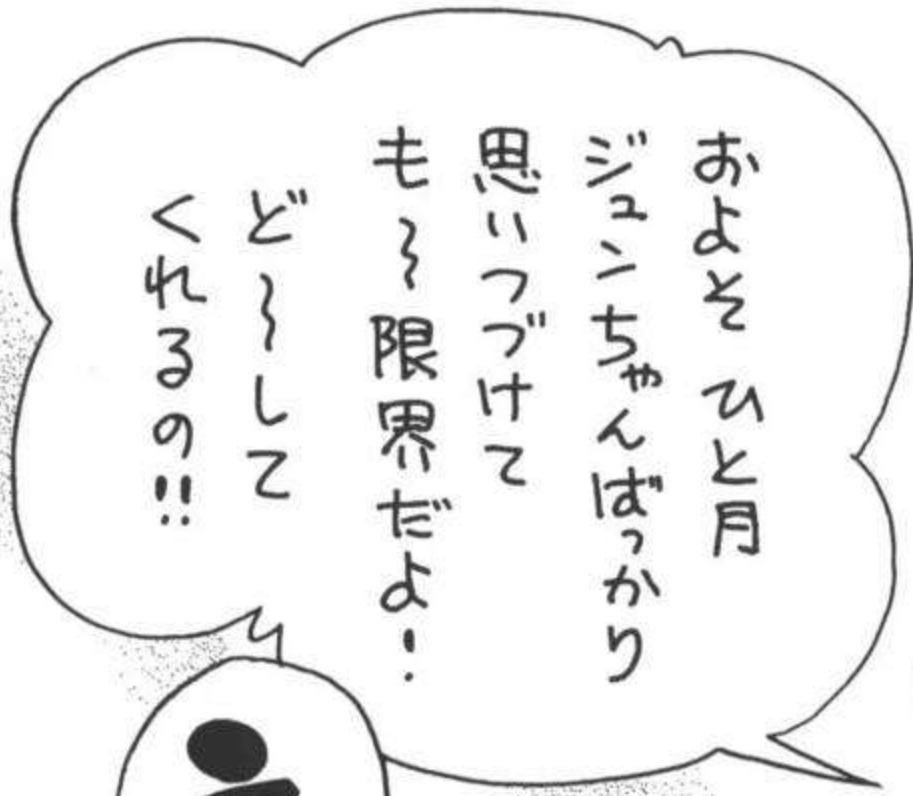 およそ ひと月
ジュンちゃんばっかり
思いつづけて
も〜限界だよ!
ど〜して
くれるの!!